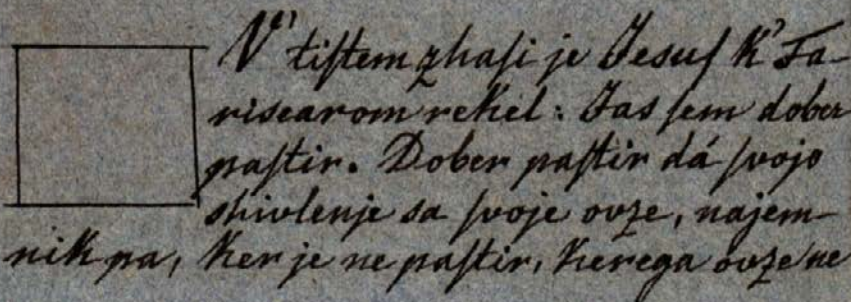 V' tiſtem zhaſi je Jesuſ k' Fa-
risearom rekel: Jas ſem dober
paſtir. Dober paſtir dá ſvojo
shivlenje sa ſvoje ovze, najem-
nik pa, ker je ne paſtir, kerega ovze ne